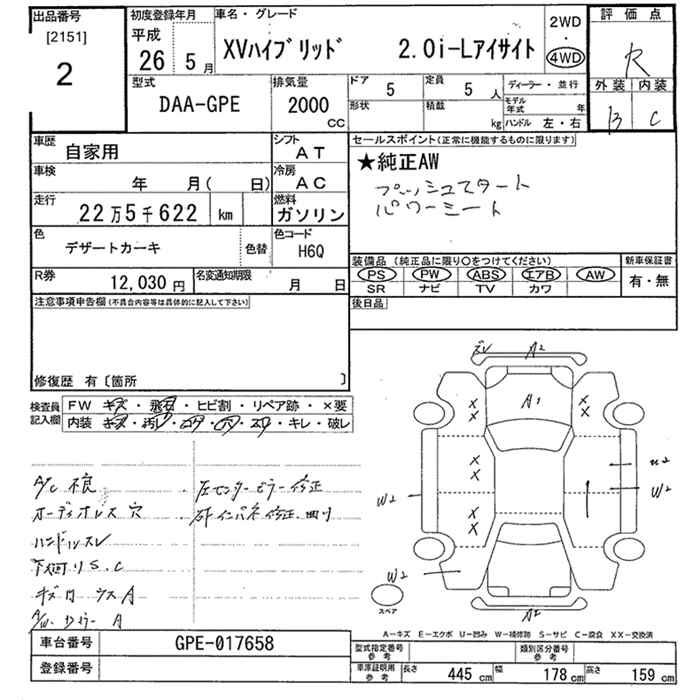 出品番号
[2151]
2
初度登録年月
平成
26 5月
車名・グレード
XVハイブリッド 2.0i-Lアイサイト
2WD
・
4WD
評価点
R
外装 内装
B C
型式
DAA-GPE
排気量
2000
CC
ドア 5
定員 5 人
ディーラー・並行
形状
積載
kg
モデル年式 年
ハンドル 左・右
車歴
自家用
シフト
AT
車検
年 月( 日)
冷房
AC
走行
22万5千622 km
燃料
ガソリン
色
デザートカーキ
色替
色コード
H6Q
R券
12,030円
名変通知期限
月 日
セールスポイント(正常に機能するものに限ります)
★純正AW
プッシュスタート
パワーシート
装備品(純正品に限り○をつけてください)
PS PW ABS エアB AW
SR ナビ TV カワ
新車保証書
有・無
後日品
注意事項申告欄(不具合内容等は具体的に記入して下さい)
修復歴 有〔箇所 〕
検査員記入欄
FW キズ・飛石・ヒビ割・リペア跡・×要
内装 キズ・汚レ・コゲ・穴・スレ・キレ・破レ
A/C 不良
オーディオレス 穴
ハンドルスレ
下廻り S.C
左センターピラー修正
ズレ A2
A1
X X X X
X X
X X
W2
W2
W2
A2
スペア
A-キズ E-エクボ U-凹み W-補修跡 S-サビ C-腐食 XX-交換済
車台番号 GPE-017658
登録番号
型式指定番号 参考
類別区分番号 参考
車庫証明用 参考
長さ 445 cm 幅 178 cm 高さ 159 cm